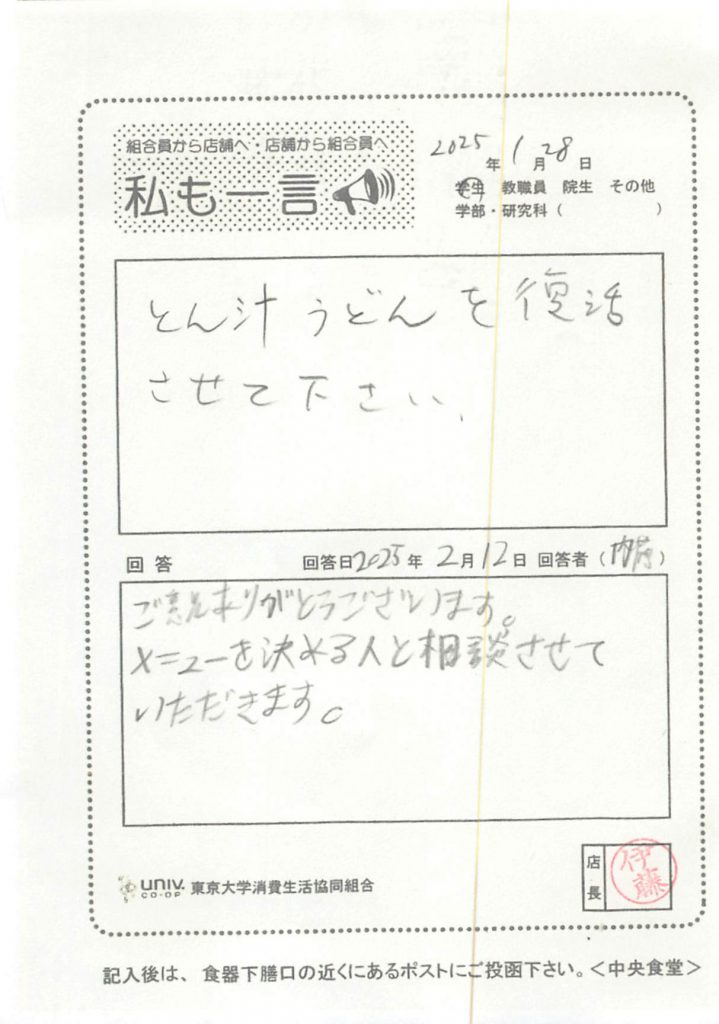 組合員から店舗へ・店舗から組合員へ
私も一言
2025年1月28日
学生 教職員 院生 その他
学部・研究科（　　　）
とん汁うどんを復活
させて下さい、
回答 回答日2025年2月12日 回答者（内藤）
ご意見ありがとうございます。
メニューを決める人と相談させて
いただきます。
店長
伊藤
univ.
CO-OP
東京大学消費生活協同組合
記入後は、食器下膳口の近くにあるポストにご投函下さい。＜中央食堂＞